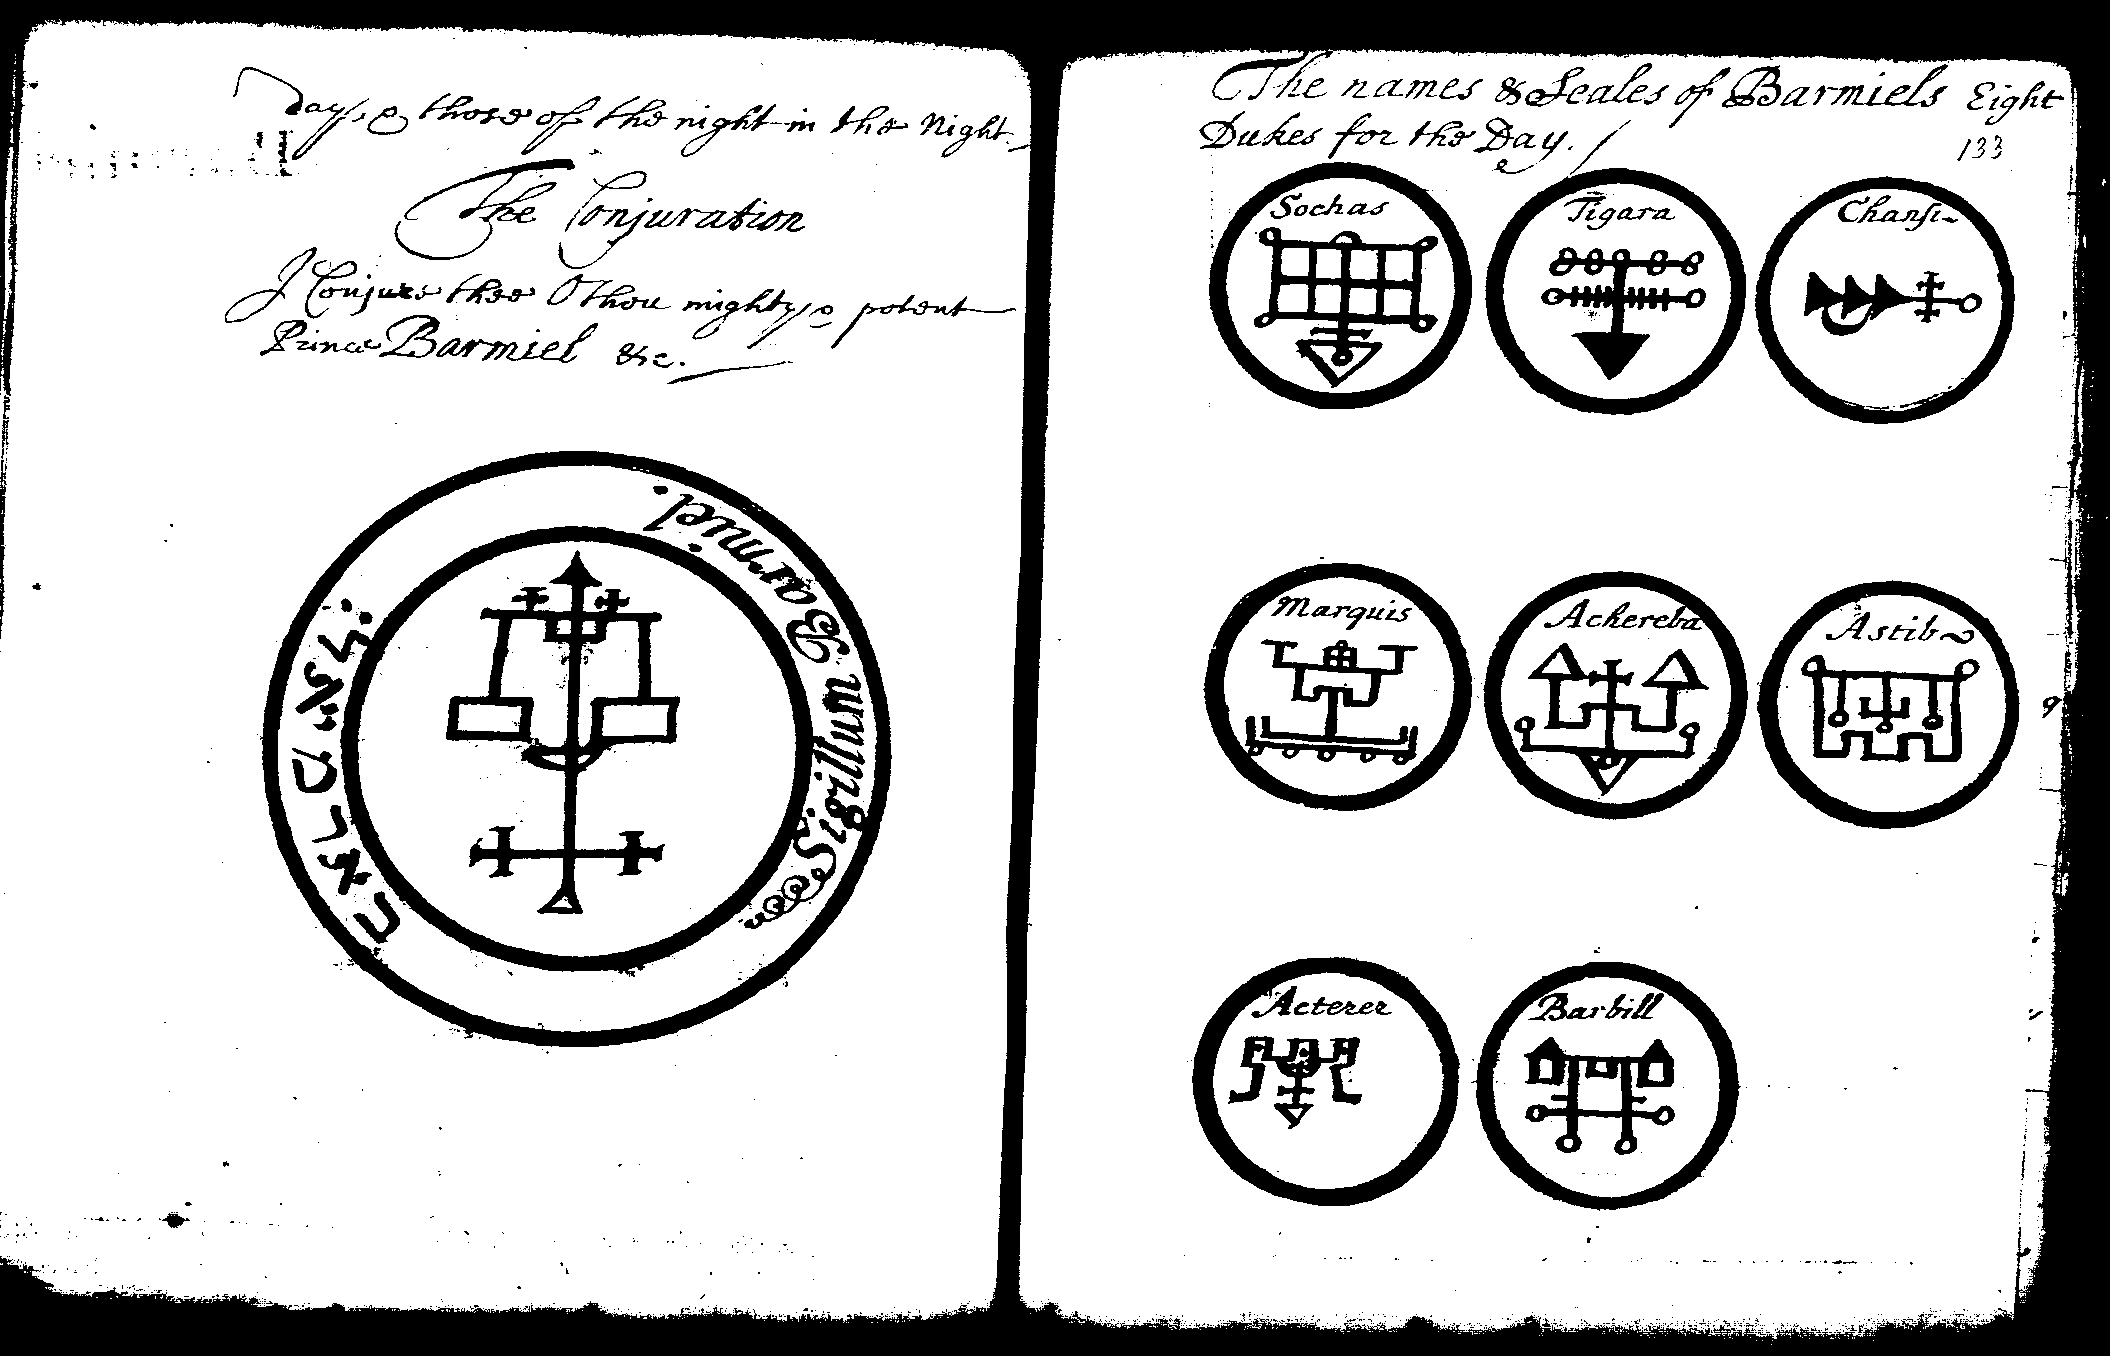 Day, & those of the night in the Night.
The Conjuration
I Conjure thee O thou mighty & potent
Prince Barmiel &c.
Sigillum Barmiel.
The names & Seales of Barmiels Eight
Dukes for the Day.
133
Sochas
Tigara
Chansi
Marquis
Ackereba
Astib
Acterer
Barbill